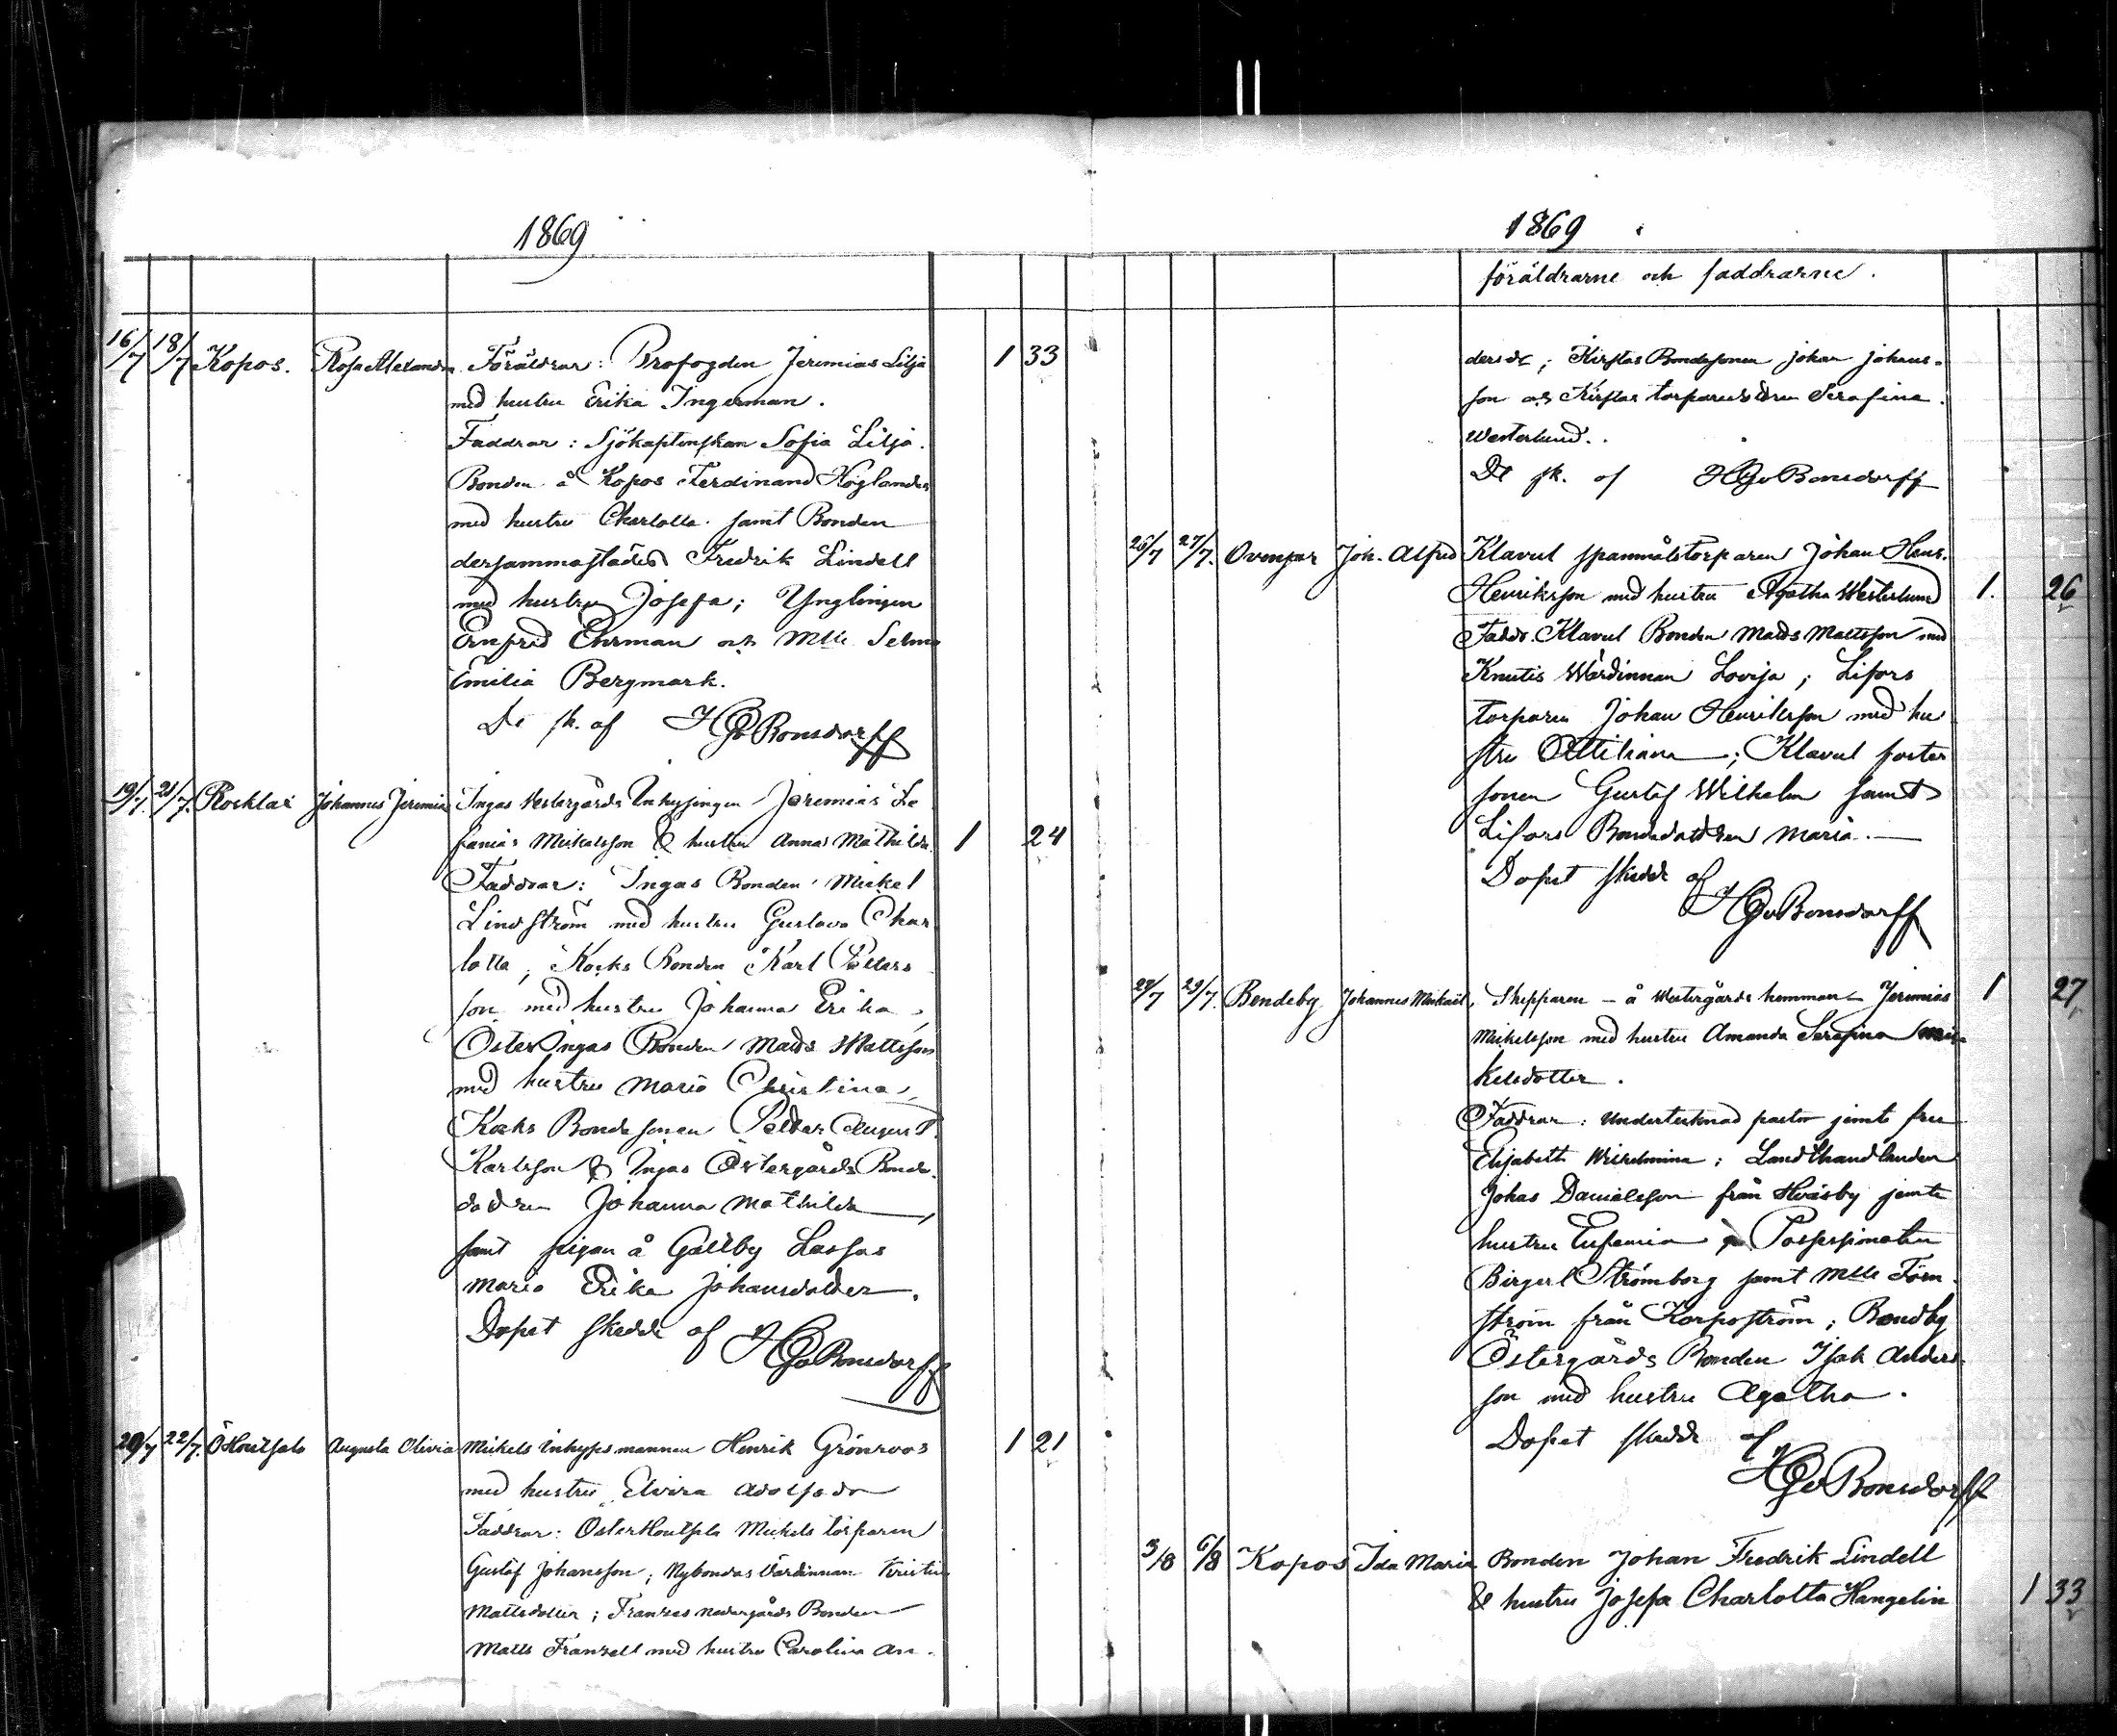 1869
16/7 18/7 Kopos. Rosa Alexandra Föräldrar: Brofogden Jeremias Lilja 1 33
med hustru Erika Ingerman.
Faddrar: Sjökaptenskan Sofia Lilja.
Bonden å Kopos Ferdinand Höglander
med hustru Charlotta. samt Bonden
dersammastädes Fredrik Lindell
med hustru Josefa; Ynglingen
Ernfred Ehrman och Mlle Selma
Emilia Bergmark.
De sk. af HGvBonsdorff
19/7. 21/7. Rocklax Johannes Jeremia Ingas Westergårds Inhysingen Jeremias Se
fanias Mickelsson & hustru Anna Mathilda. 1 24
Faddrar: Ingas Bonden Mickel
Lindström med hustru Gustava Char
lotta; Kocks Bonden Karl Petters
son med hustru Johanna Erika,
Öster Ingas Bonden Mats Mattsson
med hustru Maria Christina,
Kocks Bondesonen Petter August
Karlsson & Ingas Östergårds Bonde
dottren Johanna Mathilda,
samt pigan å Gällby Lassas
Maria Erika Johansdotter.
Dopet skedde af HGvBonsdorff
20/7 22/7. ÖHoutsala Augusta Olivia Mickels inhyses mannen Henrik Grönroos 1 21
med hustru Elvira Adolfsdr
Faddrar: Öster Houtsala Mickels torparen
Gustaf Johansson; Nybondas Värdinnan Kristina
Mattsdotter; Franses nedergårds Bonden
Matts Fransell med hustru Carolina An-
1869
föräldrarne och faddrarne.
dersdr; Kirstas Bondesonen Johan Johans-
son och Kirstas torparedottren Serafina
Westerlund.
De sk. af HGvBonsdorff
26/7 27/7. Ovensor Joh. Alfred Klavul spannmålstorparen Johan Hens.
Henriksson med hustru Agatha Westerlund 1. 26
Faddr. Klavul Bonden Mats Mattsson med
Knutis Wärdinnan Lovisa; Lifors
torparen Johan Henriksson med hu
stru Ottiliana; Klavul foster
sonen Gustaf Wilhelm samt
Lifors Bondedottren Maria.
Dopet skedde af
HGvBonsdorff
29/7. Bendeby Johannes Mickael, Skepparen - å Westergårds hemman - Jeremias 1 27
Mickelsson med hustru Amanda Serafina Mic
kelsdotter.
Faddrar: Undertecknad pastor jemte fru
Elisabeth Wilhelmina; Landthandlanden
Johas Danielsson från Hväsby jemte
hustru Eufemia; Possessionaten
Birger Strömborg samt Mlle Törn
ström från Korpoström; Bendby
Östergårds Bonden Isak Anders
son med hustru Agatha.
Dopet skedde af
HGvBonsdorff
3/8 6/8 Kopos Ida Maria Bonden Johan Fredrik Lindell
& hustru Josefa Charlotta Hangelin 1 33